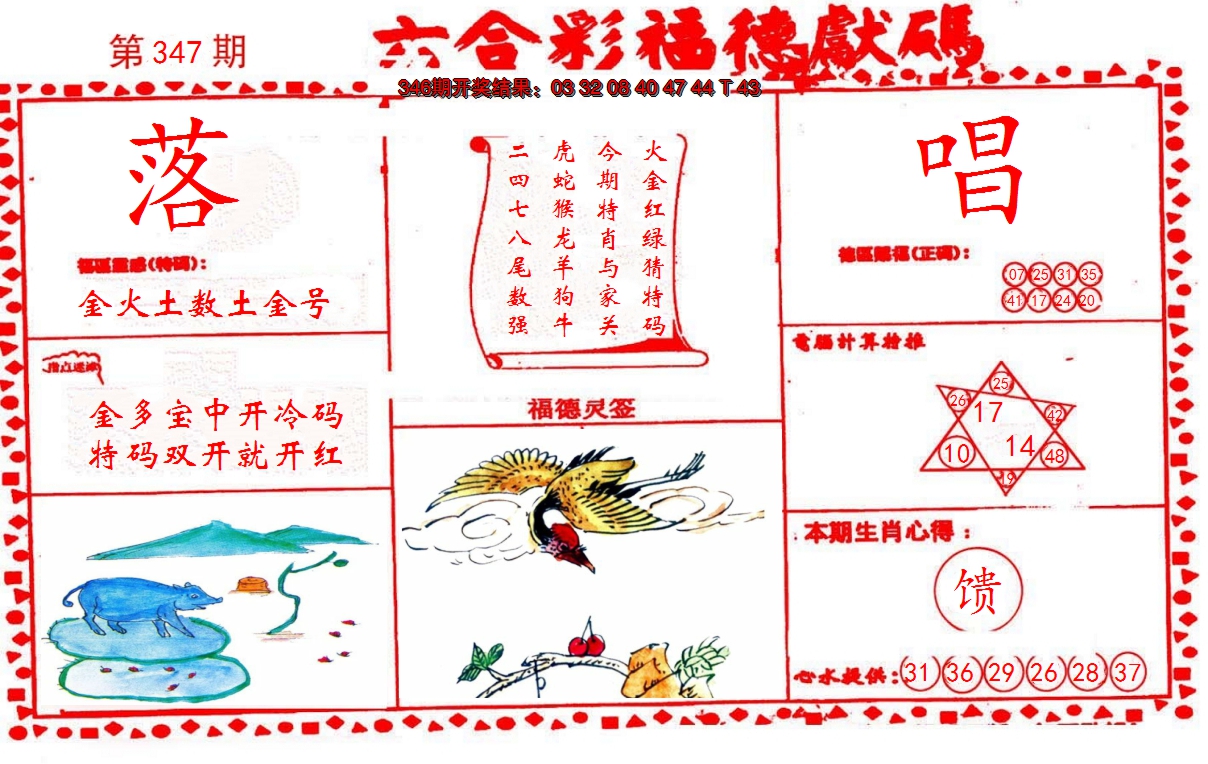 第347期
六合彩福德獻碼
346期开奖结果：03 32 08 40 47 44 T 43
落
福區靈感(特碼)：
金火土数土金号
指点迷津
金多宝中开冷码
特码双开就开红
火金红绿猜特码
今期特肖与家关
虎蛇猴龙羊狗牛
二四七八尾数强
福德灵签
唱
德區賜福(正碼)：
07 25 31 35
41 17 24 20
電腦計算特推
25
26 17 42
10 14 48
19
本期生肖心得：
馈
心水提供：31 36 29 26 28 37